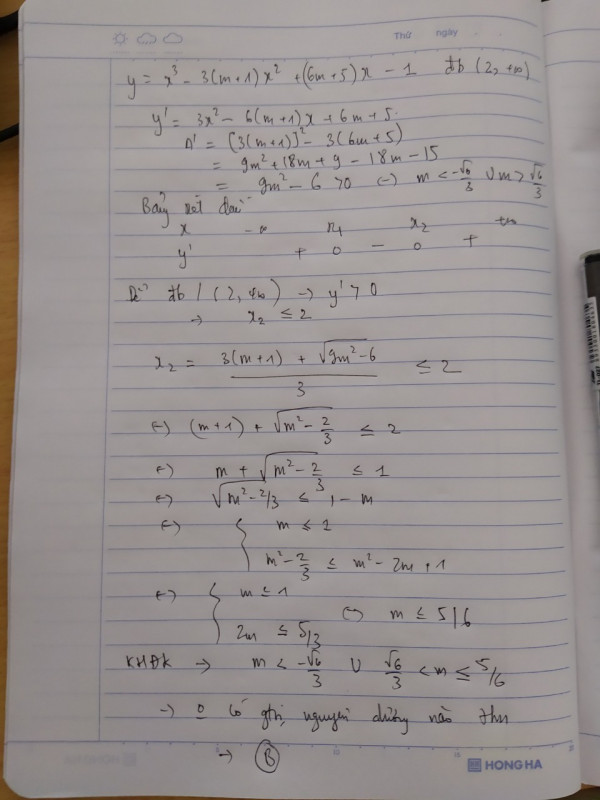 Thứ ngày
y = x³ - 3(m+1)x² + (6m+5)x - 1 đb (2, +∞)
y' = 3x² - 6(m+1)x + 6m + 5.
Δ' = [3(m+1)]² - 3(6m+5)
= 9m² + 18m + 9 - 18m - 15
= 9m² - 6 > 0 (-) m < -√6/3 ∪ m > √6/3
Bảng xét dấu
x -∞ x₁ x₂ +∞
y' + 0 - 0 +
Để đb / (2, +∞) → y' > 0
→ x₂ ≤ 2
x₂ = (3(m+1) + √(9m²-6))/3 ≤ 2
(-) (m+1) + √(m² - 2/3) ≤ 2
(-) m + √(m² - 2/3) ≤ 1
(-) √(m² - 2/3) ≤ 1 - m
(-) { m ≤ 2
m² - 2/3 ≤ m² - 2m + 1
(-) { m ≤ 1
2m ≤ 5/3 (-) m ≤ 5/6
KHĐK → m < -√6/3 ∪ √6/3 < m ≤ 5/6
→ 0 có gtrị nguyên dương nào thm
→ B
HONG HA